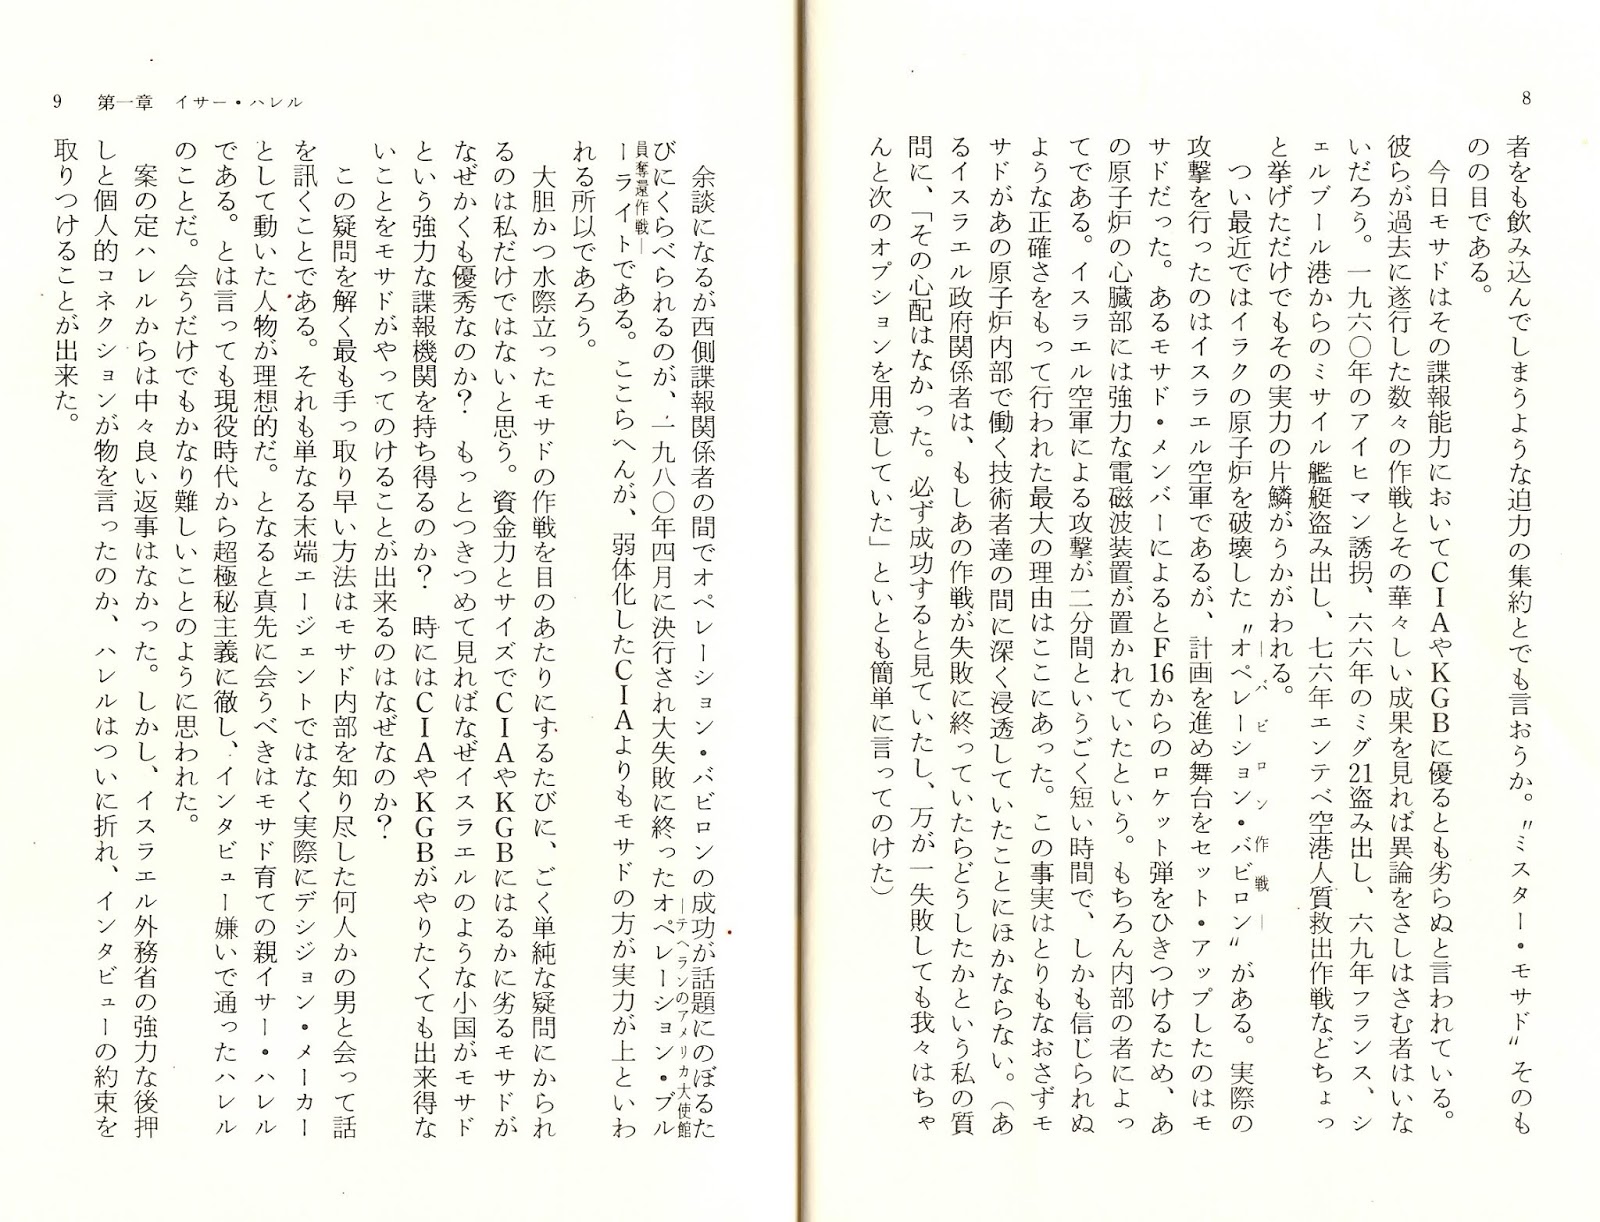 8
者をも飲み込んでしまうような迫力の集約とでも言おうか。〝ミスター・モサド〟そのも
のの目である。
今日モサドはその諜報能力においてCIAやKGBに優るとも劣らぬと言われている。
彼らが過去に遂行した数々の作戦とその華々しい成果を見れば異論をさしはさむ者はいな
いだろう。一九六〇年のアイヒマン誘拐、六六年のミグ21盗み出し、六九年フランス、シ
ェルブール港からのミサイル艦艇盗み出し、七六年エンテベ空港人質救出作戦などちょっ
と挙げただけでもその実力の片鱗がうかがわれる。
つい最近ではイラクの原子炉を破壊した〝オペレーション・バビロン〟がある。実際の
―バビロン作戦―
攻撃を行ったのはイスラエル空軍であるが、計画を進め舞台をセット・アップしたのはモ
サドだった。あるモサド・メンバーによるとF16からのロケット弾をひきつけるため、あ
の原子炉の心臓部には強力な電磁波装置が置かれていたという。もちろん内部の者によっ
てである。イスラエル空軍による攻撃が二分間というごく短い時間で、しかも信じられぬ
ような正確さをもって行われた最大の理由はここにあった。この事実はとりもなおさずモ
サドがあの原子炉内部で働く技術者達の間に深く浸透していたことにほかならない。（あ
るイスラエル政府関係者は、もしあの作戦が失敗に終っていたらどうしたかという私の質
問に、「その心配はなかった。必ず成功すると見ていたし、万が一失敗しても我々はちゃ
んと次のオプションを用意していた」といとも簡単に言ってのけた）
9 第一章 イサー・ハレル
余談になるが西側諜報関係者の間でオペレーション・バビロンの成功が話題にのぼるた
びにくらべられるのが、一九八〇年四月に決行され大失敗に終ったオペレーション・ブル
―テヘランのアメリカ大使館
ーライトである。ここらへんが、弱体化したCIAよりもモサドの方が実力が上といわ
員奪還作戦―
れる所以であろう。
大胆かつ水際立ったモサドの作戦を目のあたりにするたびに、ごく単純な疑問にかられ
るのは私だけではないと思う。資金力とサイズでCIAやKGBにはるかに劣るモサドが
なぜかくも優秀なのか？ もっとつきつめて見ればなぜイスラエルのような小国がモサド
という強力な諜報機関を持ち得るのか？ 時にはCIAやKGBがやりたくても出来得な
いことをモサドがやってのけることが出来るのはなぜなのか？
この疑問を解く最も手っ取り早い方法はモサド内部を知り尽した何人かの男と会って話
を訊くことである。それも単なる末端エージェントではなく実際にデシジョン・メーカー
として動いた人物が理想的だ。となると真先に会うべきはモサド育ての親イサー・ハレル
である。とは言っても現役時代から超極秘主義に徹し、インタビュー嫌いで通ったハレル
のことだ。会うだけでもかなり難しいことのように思われた。
案の定ハレルからは中々良い返事はなかった。しかし、イスラエル外務省の強力な後押
しと個人的コネクションが物を言ったのか、ハレルはついに折れ、インタビューの約束を
取りつけることが出来た。